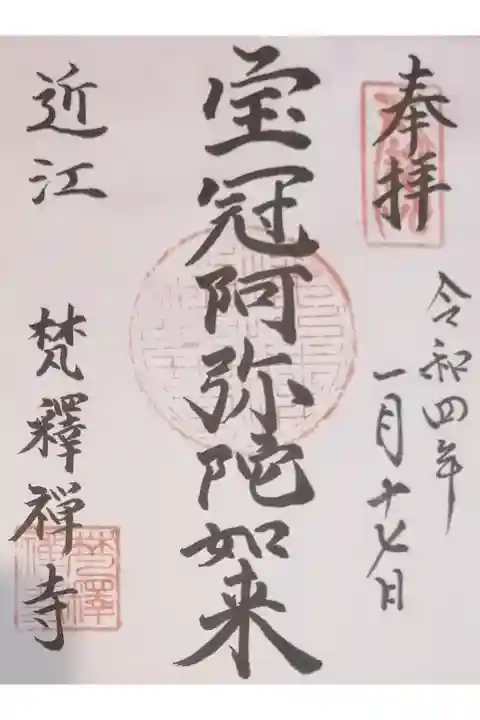 奉拝
令和四年
一月十七日
宝冠阿弥陀如来
近江 梵釋禅寺